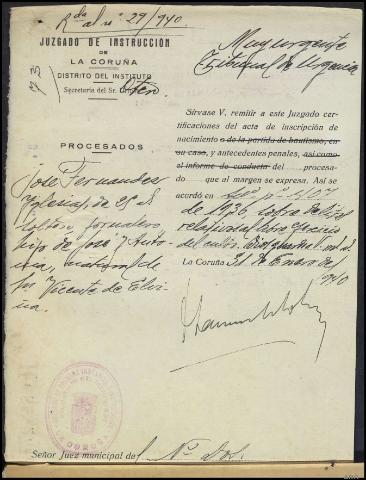 Rda al nº 29/940.
JUZGADO DE INSTRUCCIÓN
DE
LA CORUÑA
DISTRITO DEL INSTITUTO
Secretaría del Sr. Otero
Muy urgente
Tribunal de Urgencia
PROCESADOS
José Fernandez
Iglesias, de 25 a
soltero, jornalero,
hijo de José y Anto
nia, natural de
Sn Vicente de Elvi
ña.
Sírvase V. remitir a este Juzgado cer-
tificaciones del acta de inscripción de
nacimiento o de la partida de bautismo, en
su caso, y antecedentes penales, así como
el informe de conducta del procesa-
do que al margen se expresa. Así se
acordó en nº 407
de 1936, sobre delitos
relativos al libre ejercicio
del culto. Dios guarde a V. m. a.
La Coruña 31 de Enero de
1940
Señor Juez municipal del Nº Dos.